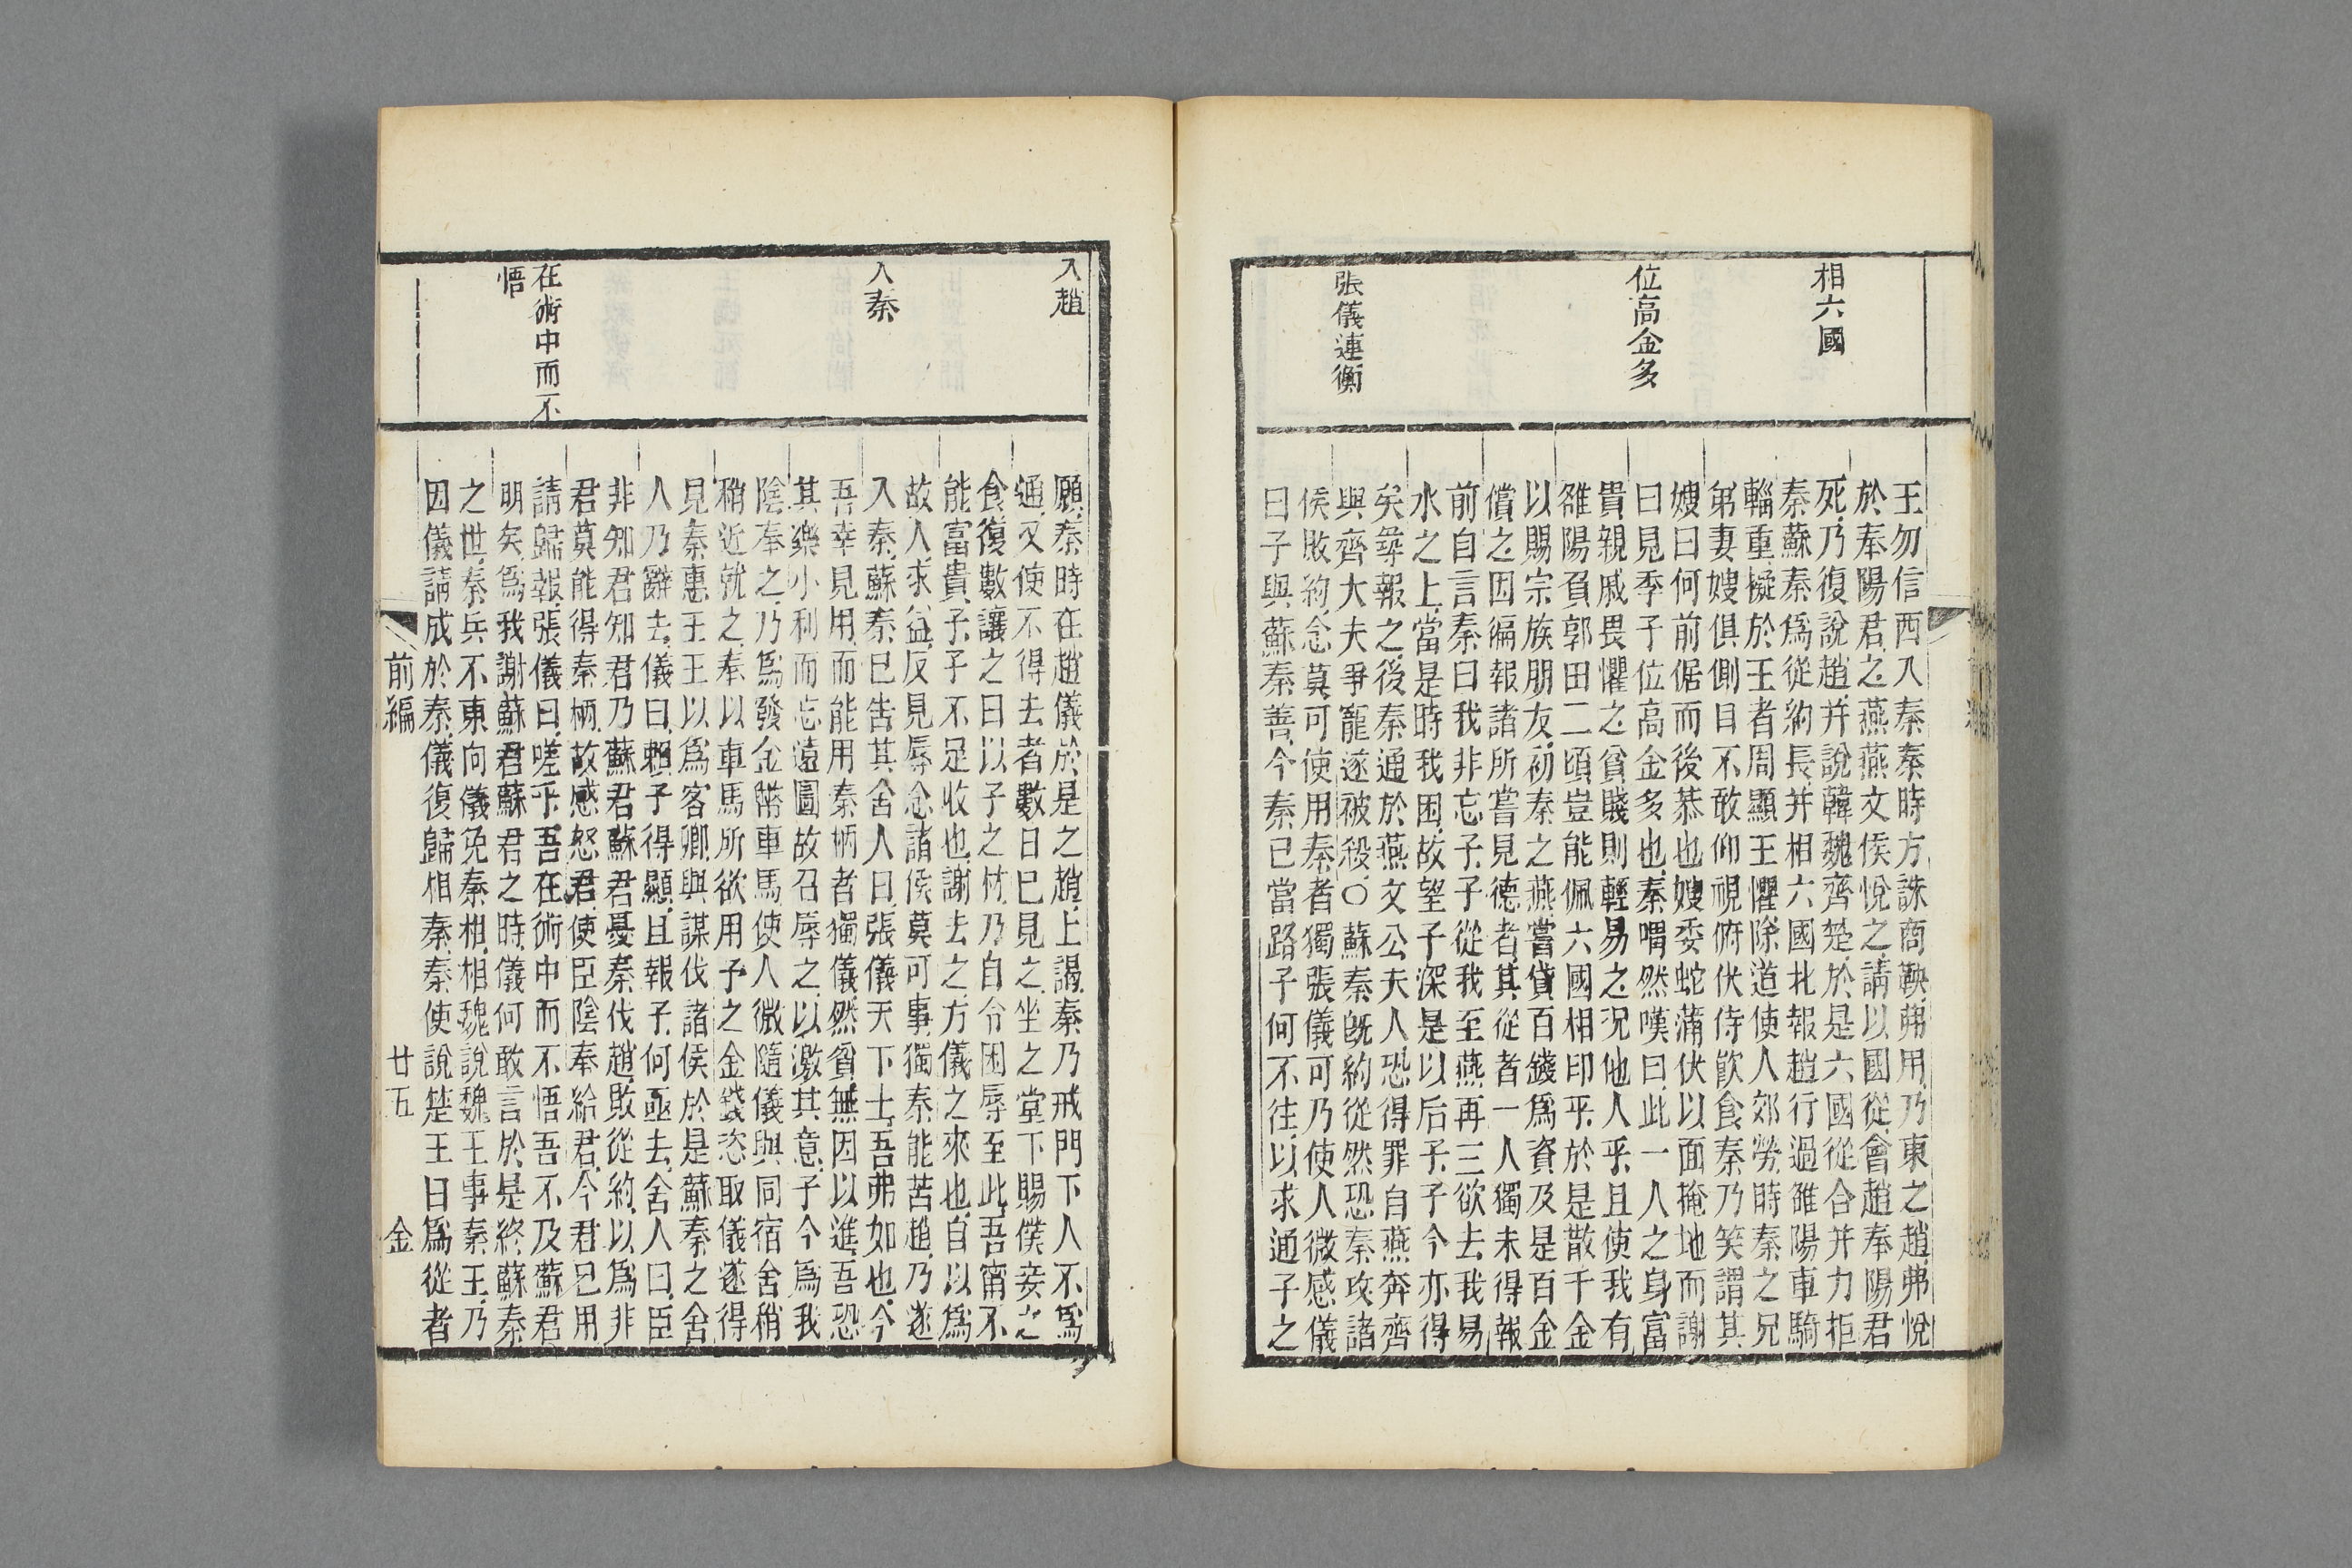 相六國
位高金多
張儀連衡
王勿信西入秦秦時方誅商鞅弗用乃東之趙弗悅
於奉陽君之燕燕文侯悅之請以國從會趙奉陽君
死乃復說趙并說韓魏齊楚於是六國從合并力拒
秦蘇秦爲從約長并相六國北報趙行過雒陽車騎
輜重擬於王者周顯王懼除道使人郊勞時秦之兄
弟妻嫂俱側目不敢仰視俯伏侍飮食秦乃笑謂其
嫂曰何前倨而後恭也嫂委蛇蒲伏以面掩地而謝
曰見季子位高金多也秦喟然嘆曰此一人之身富
貴親戚畏懼之貧賤則輕易之况他人乎且使我有
雒陽負郭田二頃豈能佩六國相印乎於是散千金
以賜宗族朋友初秦之燕嘗貸百錢爲資及是百金
償之因徧報諸所嘗見德者其從者一人獨未得報
前自言秦曰我非忘子子從我至燕再三欲去我易
水之上當是時我困故望子深是以后子子今亦得
矣舜報之後秦通於燕文公夫人恐得罪自燕奔齊
與齊大夫爭寵遂被殺○蘇秦旣約從然恐秦攻諸
侯敗約念莫可使用秦者獨張儀可乃使人微感儀
曰子與蘇秦善今秦已當路子何不往以求通子之
入趙
入秦
在術中而不
悟
願秦時在趙儀於是之趙上謁秦乃戒門下人不爲
通又使不得去者數日已見之坐之堂下賜僕妾之
食復數讓之曰以子之材乃自令困辱至此吾甯不
能富貴子子不足收也謝去之方儀之來也自以爲
故人求益反見辱念諸侯莫可事獨秦能苦趙乃遂
入秦蘇秦已告其舍人曰張儀天下士吾弗如也今
吾幸見用而能用秦柄者獨儀然貧無因以進吾恐
其樂小利而忘遠圖故召辱之以激其意子今爲我
陰奉之乃爲發金幣車馬使人微隨儀與同宿舍稍
稍近就之奉以車馬所欲用予之金錢恣取儀遂得
見秦惠王王以爲客卿與謀伐諸侯於是蘇秦之舍
人乃辭去儀曰賴子得顯且報子何亟去舍人曰臣
非知君知君乃蘇君蘇君憂秦伐趙敗從約以爲非
君莫能得秦柄故感怒君使臣陰奉給君今君已用
請歸報張儀曰嗟乎吾在術中而不悟吾不及蘇君
明矣爲我謝蘇君蘇君之時儀何敢言於是終蘇秦
之世秦兵不東向儀免秦相相魏說魏王事秦王乃
因儀請成於秦儀復歸相秦秦使說楚王曰爲從者
前編 廿五 金